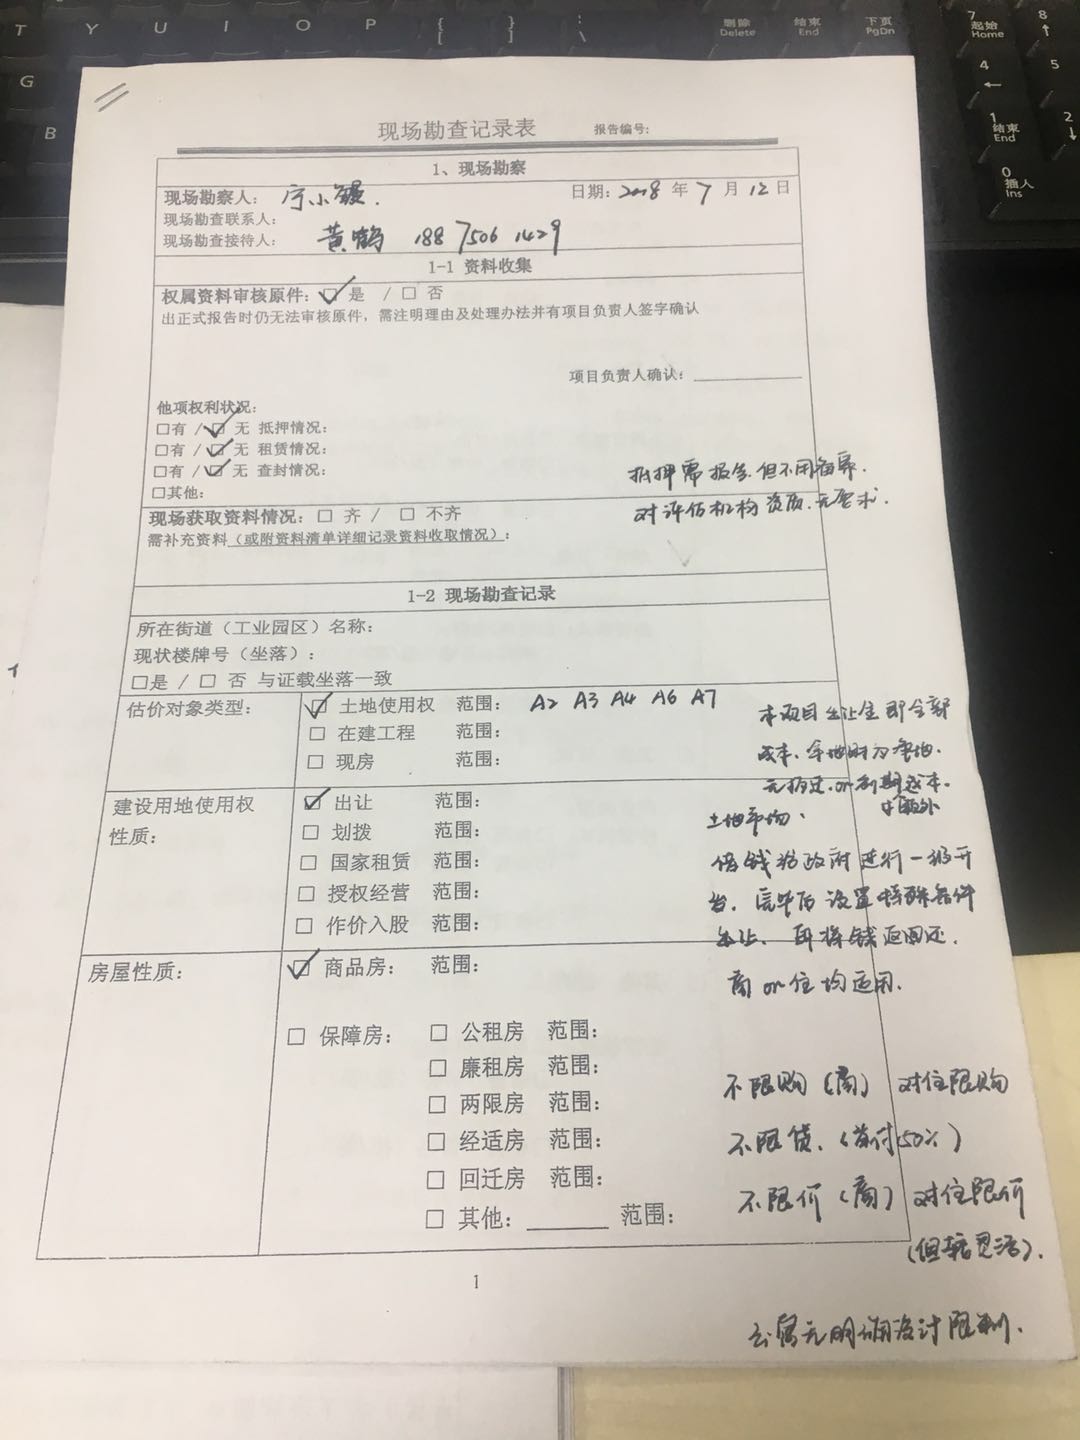 T Y U I O P { [ } ] : \
删除 Delete 结束 End 下页 PgDn 7 起始 Home 8 ↑
G 4 ← 5
B 1 结束 End 2 ↓
0 插人 Ins
现场勘查记录表 报告编号:
1、现场勘察
现场勘察人: 宁小 日期: 2018 年 7 月 12 日
现场勘查联系人:
现场勘查接待人: 黄鹤 188 7506 1429
1-1 资料收集
权属资料审核原件: ☑ 是 / □ 否
出正式报告时仍无法审核原件，需注明理由及处理办法并有项目负责人签字确认
项目负责人确认: ________
他项权利状况:
□有 / ☑ 无 抵押情况:
□有 / ☑ 无 租赁情况:
□有 / ☑ 无 查封情况:
□其他:
抵押需报告.但不用备案.
对评估机构资质.无要求.
现场获取资料情况: □ 齐 / □ 不齐
需补充资料（或附资料清单详细记录资料收取情况）:
1-2 现场勘查记录
所在街道（工业园区）名称:
现状楼牌号（坐落）:
□是 / □ 否 与证载坐落一致
估价对象类型: ☑ 土地使用权 范围: A2 A3 A4 A6 A7
□ 在建工程 范围:
□ 现房 范围:
本项目出让金即全部
成本.拿地时为净地.
无拆迁.or前期成本.
土地市场.
建设用地使用权性质: ☑ 出让 范围:
□ 划拨 范围:
□ 国家租赁 范围:
□ 授权经营 范围:
□ 作价入股 范围:
借钱给政府进行一级开
发.完毕后设置特殊条件
出让.再将钱返回还.
商or住均适用.
房屋性质: ☑ 商品房: 范围:
□ 保障房: □ 公租房 范围:
□ 廉租房 范围:
□ 两限房 范围:
□ 经适房 范围:
□ 回迁房 范围:
□ 其他: ______ 范围:
不限购（商） 对住限购
不限贷.（首付50%）
不限价（商） 对住限价
（但较灵活）.
1